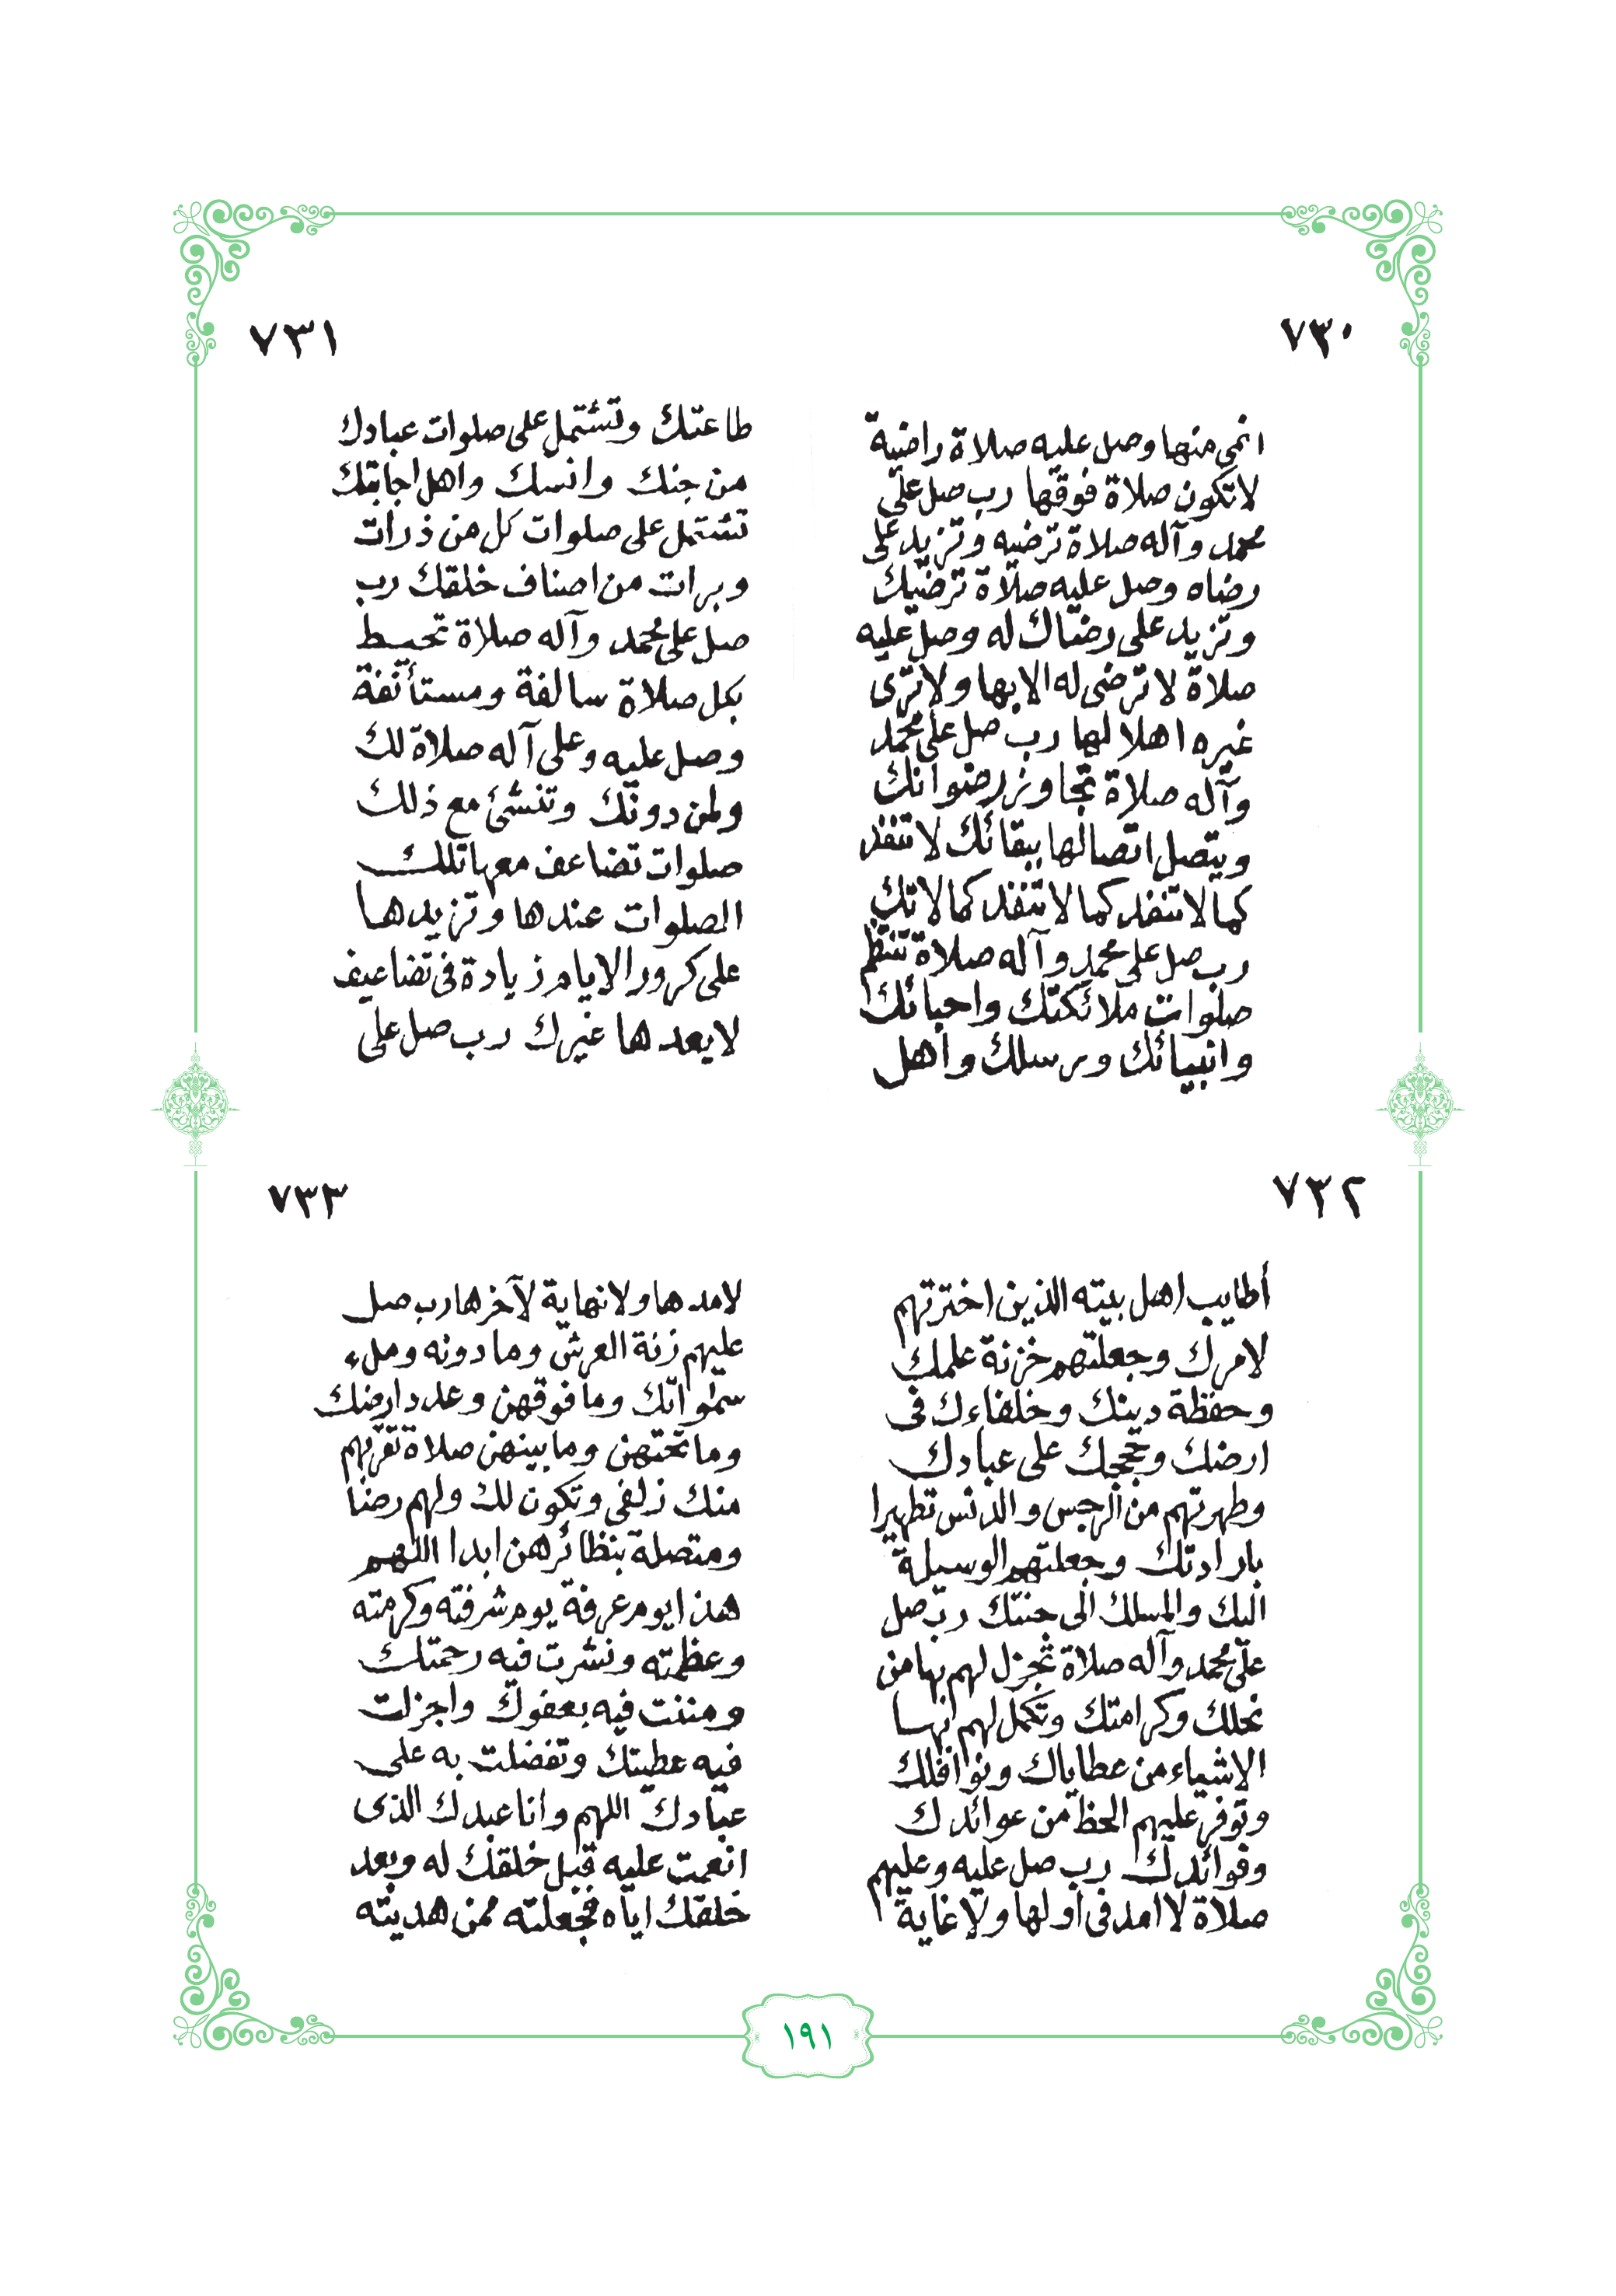 ٧٣٠
انمى منها وصل عليه صلاة راضية
لا تكون صلاة فوقها رب صل على
محمد وآله صلاة ترضيه وتزيد على
رضاه وصل عليه صلاة ترضيك
وتزيد على رضاك له وصل عليه
صلاة لا ترضى له الا بها ولا ترى
غيره اهلا لها رب صل على محمد
وآله صلاة تجاوز رضوانك
ويتصل اتصالها ببقائك لا تنفد
كما لا تنفد كما لا تنفد كمالاتك
رب صل على محمد وآله صلاة تنتظم
صلوات ملائكتك واحبائك
وانبيائك ورسلك واهل
٧٣١
طاعتك وتشتمل على صلوات عبادك
من جنك وانسك واهل اجابتك
تشتمل على صلوات كل من ذرات
وبرات من اصناف خلقك رب
صل على محمد وآله صلاة تحيط
بكل صلاة سالفة ومستأنفة
وصل عليه وعلى آله صلاة لك
ولمن دونك وتنشئ مع ذلك
صلوات تضاعف معها تلك
الصلوات عندها وتزيدها
على كرور الايام زيادة فى تضاعيف
لا يعدها غيرك رب صل على
٧٣٢
أطايب اهل بيته الذين اخترتهم
لامرك وجعلتهم خزنة علمك
وحفظة دينك وخلفاءك فى
ارضك وحججك على عبادك
وطهرتهم من الرجس والدنس تطهيرا
بارادتك وجعلتهم الوسيلة
اليك والمسلك الى جنتك رب صل
على محمد وآله صلاة تجزل لهم بها من
نحلك وكرامتك وتكمل لهم بها
الاشياء من عطاياك ونوافلك
وتوفر عليهم الحظ من عوائدك
وفوائدك رب صل عليه وعليهم
صلاة لا امد فى اولها ولا غاية
٧٣٣
لامدها ولا نهاية لآخرها رب صل
عليهم زنة العرش وما دونه وملء
سمواتك وما فوقهن وعدد ارضك
وما تحتهن وما بينهن صلاة تقربهم
منك زلفى وتكون لك ولهم رضا
ومتصلة بنظائرهن ابدا اللهم
هذا يوم عرفة يوم شرفته وكرمته
وعظمته ونشرت فيه رحمتك
ومننت فيه بعفوك واجزلت
فيه عطيتك وتفضلت به على
عبادك اللهم وانا عبدك الذى
انعمت عليه قبل خلقك له وبعد
خلقك اياه فجعلته ممن هديته
١٩١